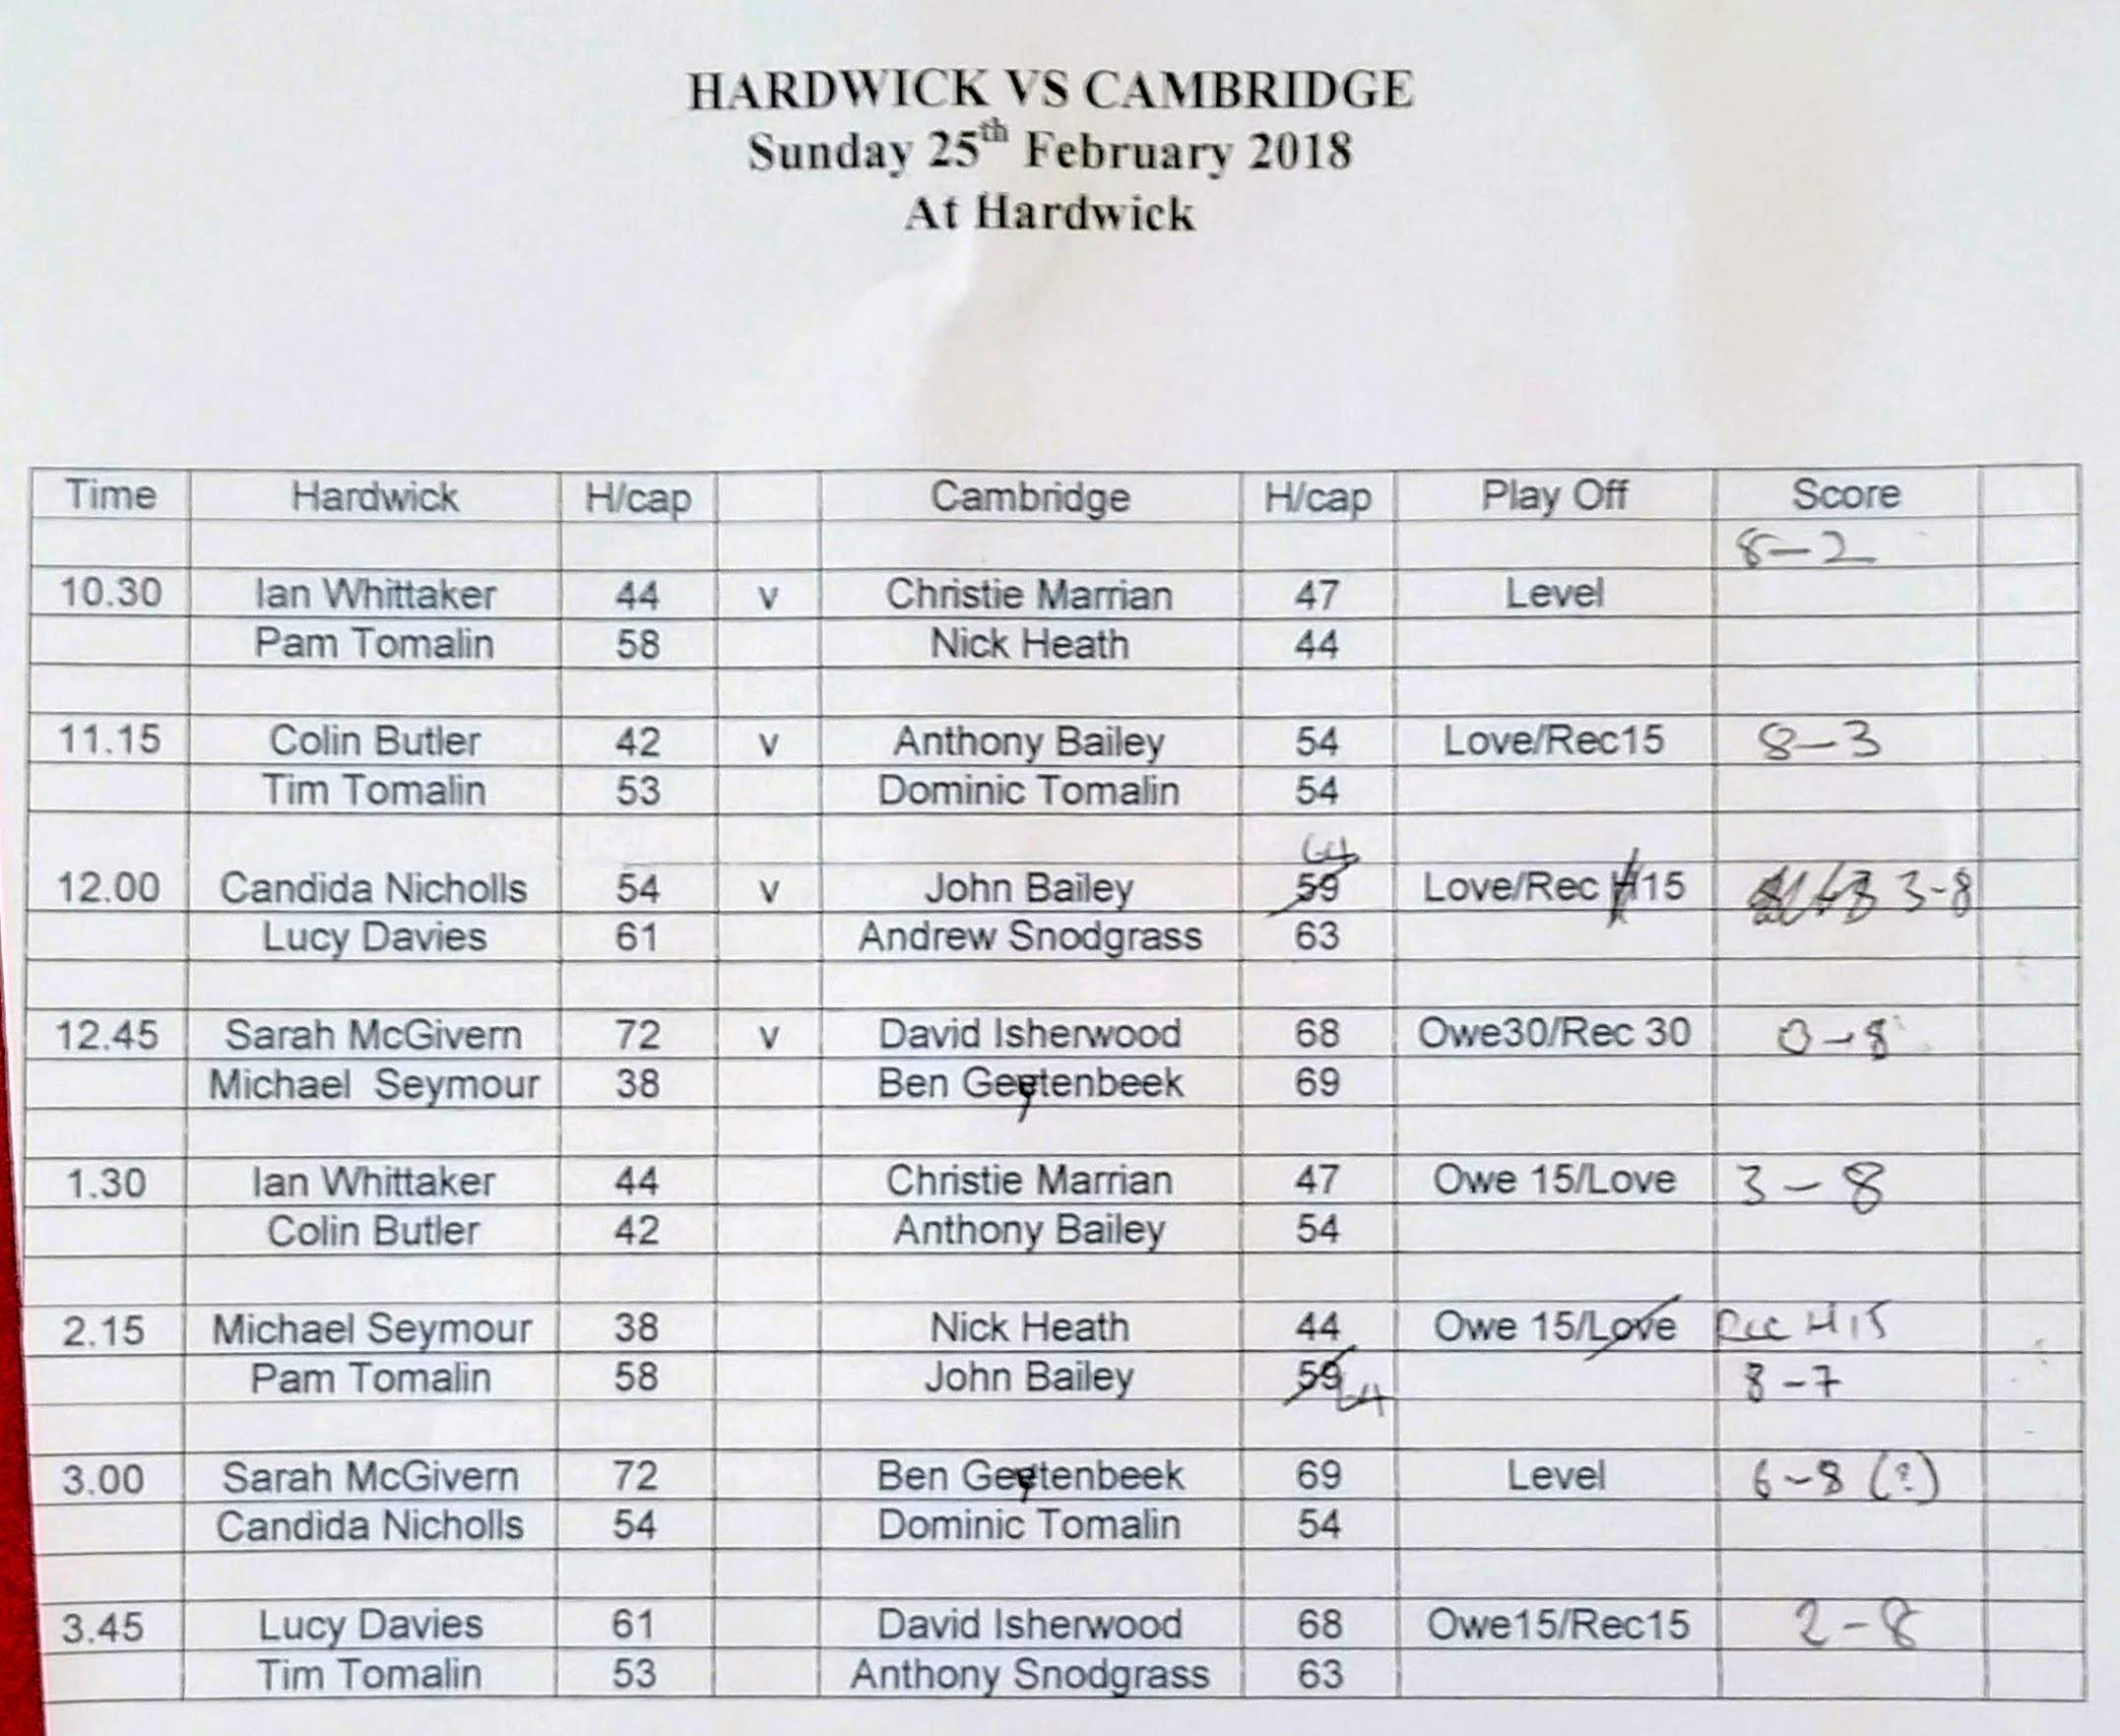 HARDWICK VS CAMBRIDGE
Sunday 25th February 2018
At Hardwick
Time Hardwick H/cap Cambridge H/cap Play Off Score
8-2
10.30 Ian Whittaker 44 v Christie Marrian 47 Level
Pam Tomalin 58 Nick Heath 44
11.15 Colin Butler 42 v Anthony Bailey 54 Love/Rec15 8-3
Tim Tomalin 53 Dominic Tomalin 54
64
12.00 Candida Nicholls 54 v John Bailey 59 Love/Rec H15 3-8
Lucy Davies 61 Andrew Snodgrass 63
12.45 Sarah McGivern 72 v David Isherwood 68 Owe30/Rec 30 0-8
Michael Seymour 38 Ben Geytenbeek 69
1.30 Ian Whittaker 44 Christie Marrian 47 Owe 15/Love 3-8
Colin Butler 42 Anthony Bailey 54
2.15 Michael Seymour 38 Nick Heath 44 Owe 15/Love Rec H15
Pam Tomalin 58 John Bailey 59 64 8-7
3.00 Sarah McGivern 72 Ben Geytenbeek 69 Level 6-8 (?)
Candida Nicholls 54 Dominic Tomalin 54
3.45 Lucy Davies 61 David Isherwood 68 Owe15/Rec15 2-8
Tim Tomalin 53 Anthony Snodgrass 63